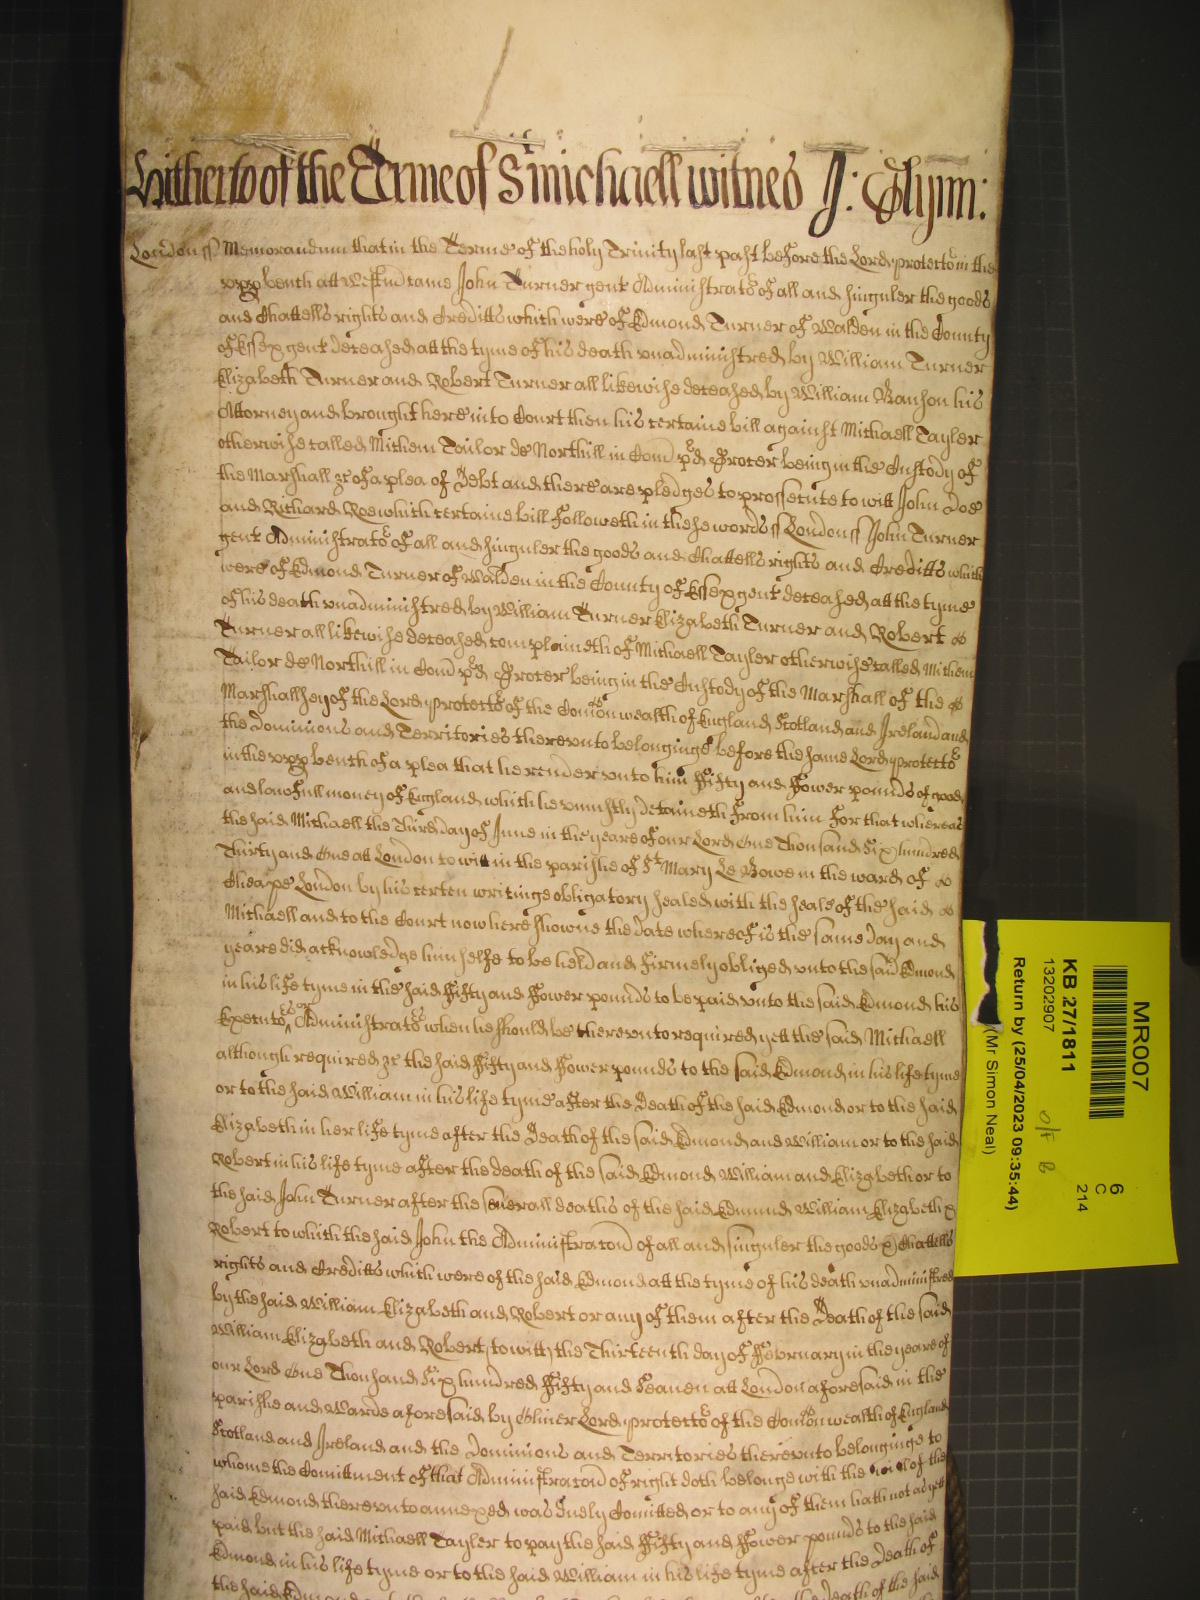 Hitherto of the Terme of St Michaell witnes J: Glynn:
London ss Memorandum that in the Terme of the holy Trinity last past before the Lord Protector in the
upp bench att Westm̄ came John Turner gent Administrator of all and singuler the goods
and Chattells rights and Creditts which were of Edmond Turner of Walden in the County
of Essex gent deceased att the tyme of his death vnadministred by William Turner
Elizabeth Turner and Robert Turner all likewise deceased by William Banson his
Attorney and brought here into Court then his certaine bill against Michaell Tayler
otherwise called Michem Tailor de Northill in Com pd Grocer being in the Custody of
the Marshall &c of a plea of Debt and there are pledges to prossecute to witt John Doe
and Richard Roe which certaine bill followeth in these words ss London ss John Turner
gent Administrator of all and singuler the goods and Chattells rights and Creditts which
were of Edmond Turner of Walden in the County of Essex gent deceased att the tyme
of his death vnadministred by William Turner Elizabeth Turner and Robert
Turner all likewise deceased complaineth of Michaell Tayler otherwise called Michem
Tailor de Northill in Com pd Grocer being in the Custody of the Marshall of the
Marshallsey of the Lord Protector of the Comon wealth of England Scotland and Ireland and
the Dominions and Territories therevnto belonginge before the same Lord Protector
in the upp bench of a plea that he render vnto him ffifty and ffower pounds of good
and lawfull money of England which he vniustly detaineth from him For that whereas
the said Michaell the Third day of June in the yeare of our Lord One Thousand six hundred
Thirty and One att London to witt in the parishe of St Mary Le Bowe in the ward of
Cheape London by his certen writinge obligatory sealed with the seale of the said
Michaell and to the Court now here showne the date whereof is the same day and
yeare did acknowledge himselfe to be held and firmely obliged vnto the said Edmond
in his life tyme in the said ffifty and ffower pounds to be paid vnto the said Edmond his
Executors or Administrators when he should be therevnto required yett the said Michaell
although required &c the said ffifty and ffower pounds to the said Edmond in his life tyme
or to the said William in his life tyme after the Death of the said Edmond or to the said
Elizabeth in her life tyme after the Death of the said Edmond and William or to the said
Robert in his life tyme after the death of the said Edmond William and Elizabeth or to
the said John Turner after the severall deaths of the said Edmund William Elizabeth &
Robert to which the said John the Administracon of all and singuler the goods & Chattells
rights and Creditts which were of the said Edmond att the tyme of his death vnadministred
by the said William Elizabeth and Robert or any of them after the Death of the said
William Elizabeth and Robert, to witt, the Thirteenth day of ffebruary in the yeare of
our Lord One Thousand six hundred ffifty and Seaven att London aforesaid in the
parishe and Warde aforesaid by Oliver Lord Protector of the Comon wealth of England
Scotland and Ireland and the Dominions and Territories therevnto belonginge to
whome the Comittment of that Administracon of right doth belonge with the will of the
said Edmond therevnto annexed was duely Comitted or to any of them hath not as yett
paid but the said Michaell Tayler to pay the said ffifty and ffower pounds to the said
Edmond in his life tyme or to the said William in his life tyme after the Death of
the said Edmond death of the said
MR007
6
C
214
KB 27/1811
13202907
Return by (25/04/2023 09:35:44)
(Mr Simon Neal)